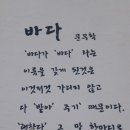 바다
문무학
'바다'가 '바다'라는
이름을 갖게 된것은
이것저것 가리지 않고
다 '받아' 주기 때문이다.
'괜찮다' 그 말 한마디로